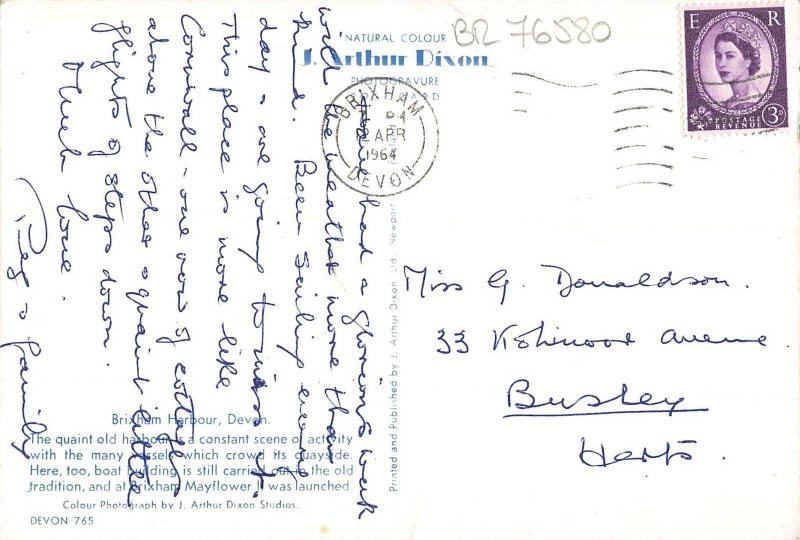 BR 76580
NATURAL COLOUR
J. Arthur Dixon
PHOTOGRAVURE
E R
POSTAGE REVENUE
3D
BRIXHAM
2 APR
1964
DEVON
have had a glorious week
with the weather more than
kind. Been sailing every
day & are going to miss it.
This place is more like
Cornwall - one row of cottages
above the other & quaint little
flights of steps down.
Much love.
& family
Miss G. Donaldson.
33 Kohinoor Avenue
Bushey
Herts.
Printed and Published by J. Arthur Dixon Ltd. Newport
Brixham Harbour, Devon.
The quaint old harbour is a constant scene of activity
with the many vessels which crowd its quayside.
Here, too, boat building is still carried out in the old
tradition, and at Brixham Mayflower II was launched
Colour Photograph by J. Arthur Dixon Studios.
DEVON 765